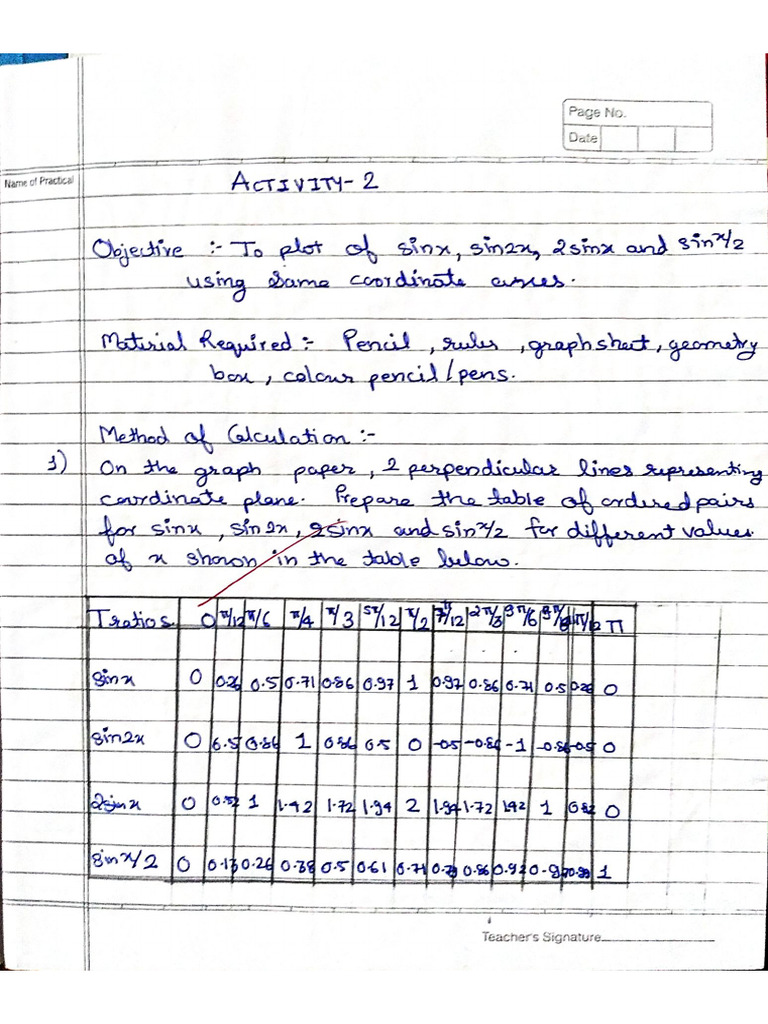 Page No.
Date
Name of Practical
ACTIVITY-2
Objective :- To plot of sinx, sin2x, 2sinx and sin x/2
using same coordinate axes.
Material Required :- Pencil, ruler, graph sheet, geometry
box, colour pencil/pens.
Method of Calculation :-
1) On the graph paper, 2 perpendicular lines representing
coordinate plane. Prepare the table of ordered pairs
for sinx, sin2x, 2sinx and sin x/2 for different values
of x shown in the table below.
Tratios 0 π/12 π/6 π/4 π/3 5π/12 π/2 7π/12 2π/3 π
sinx 0 0.26 0.5 0.71 0.86 0.97 1 0.97 0.86 0.71 0.5 0.26 0
sin2x 0 0.5 0.86 1 0.86 0.5 0 -0.5 -0.86 -1 -0.86 -0.5 0
2sinx 0 0.52 1 1.42 1.72 1.94 2 1.94 1.72 1.42 1 0.52 0
sin x/2 0 0.13 0.26 0.38 0.5 0.61 0.71 0.79 0.86 0.92 1
Teacher's Signature